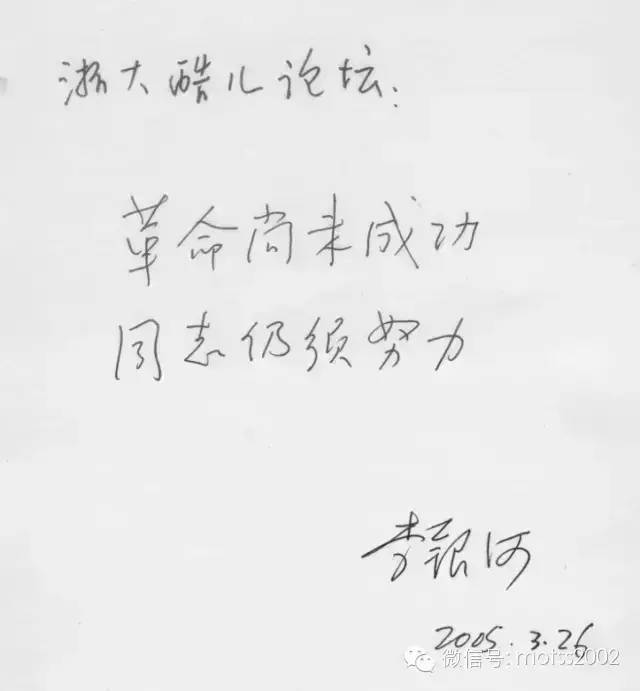 浙大酷儿论坛:
革命尚未成功
同志仍须努力
李银河
2005.3.26
微信号: motss2002